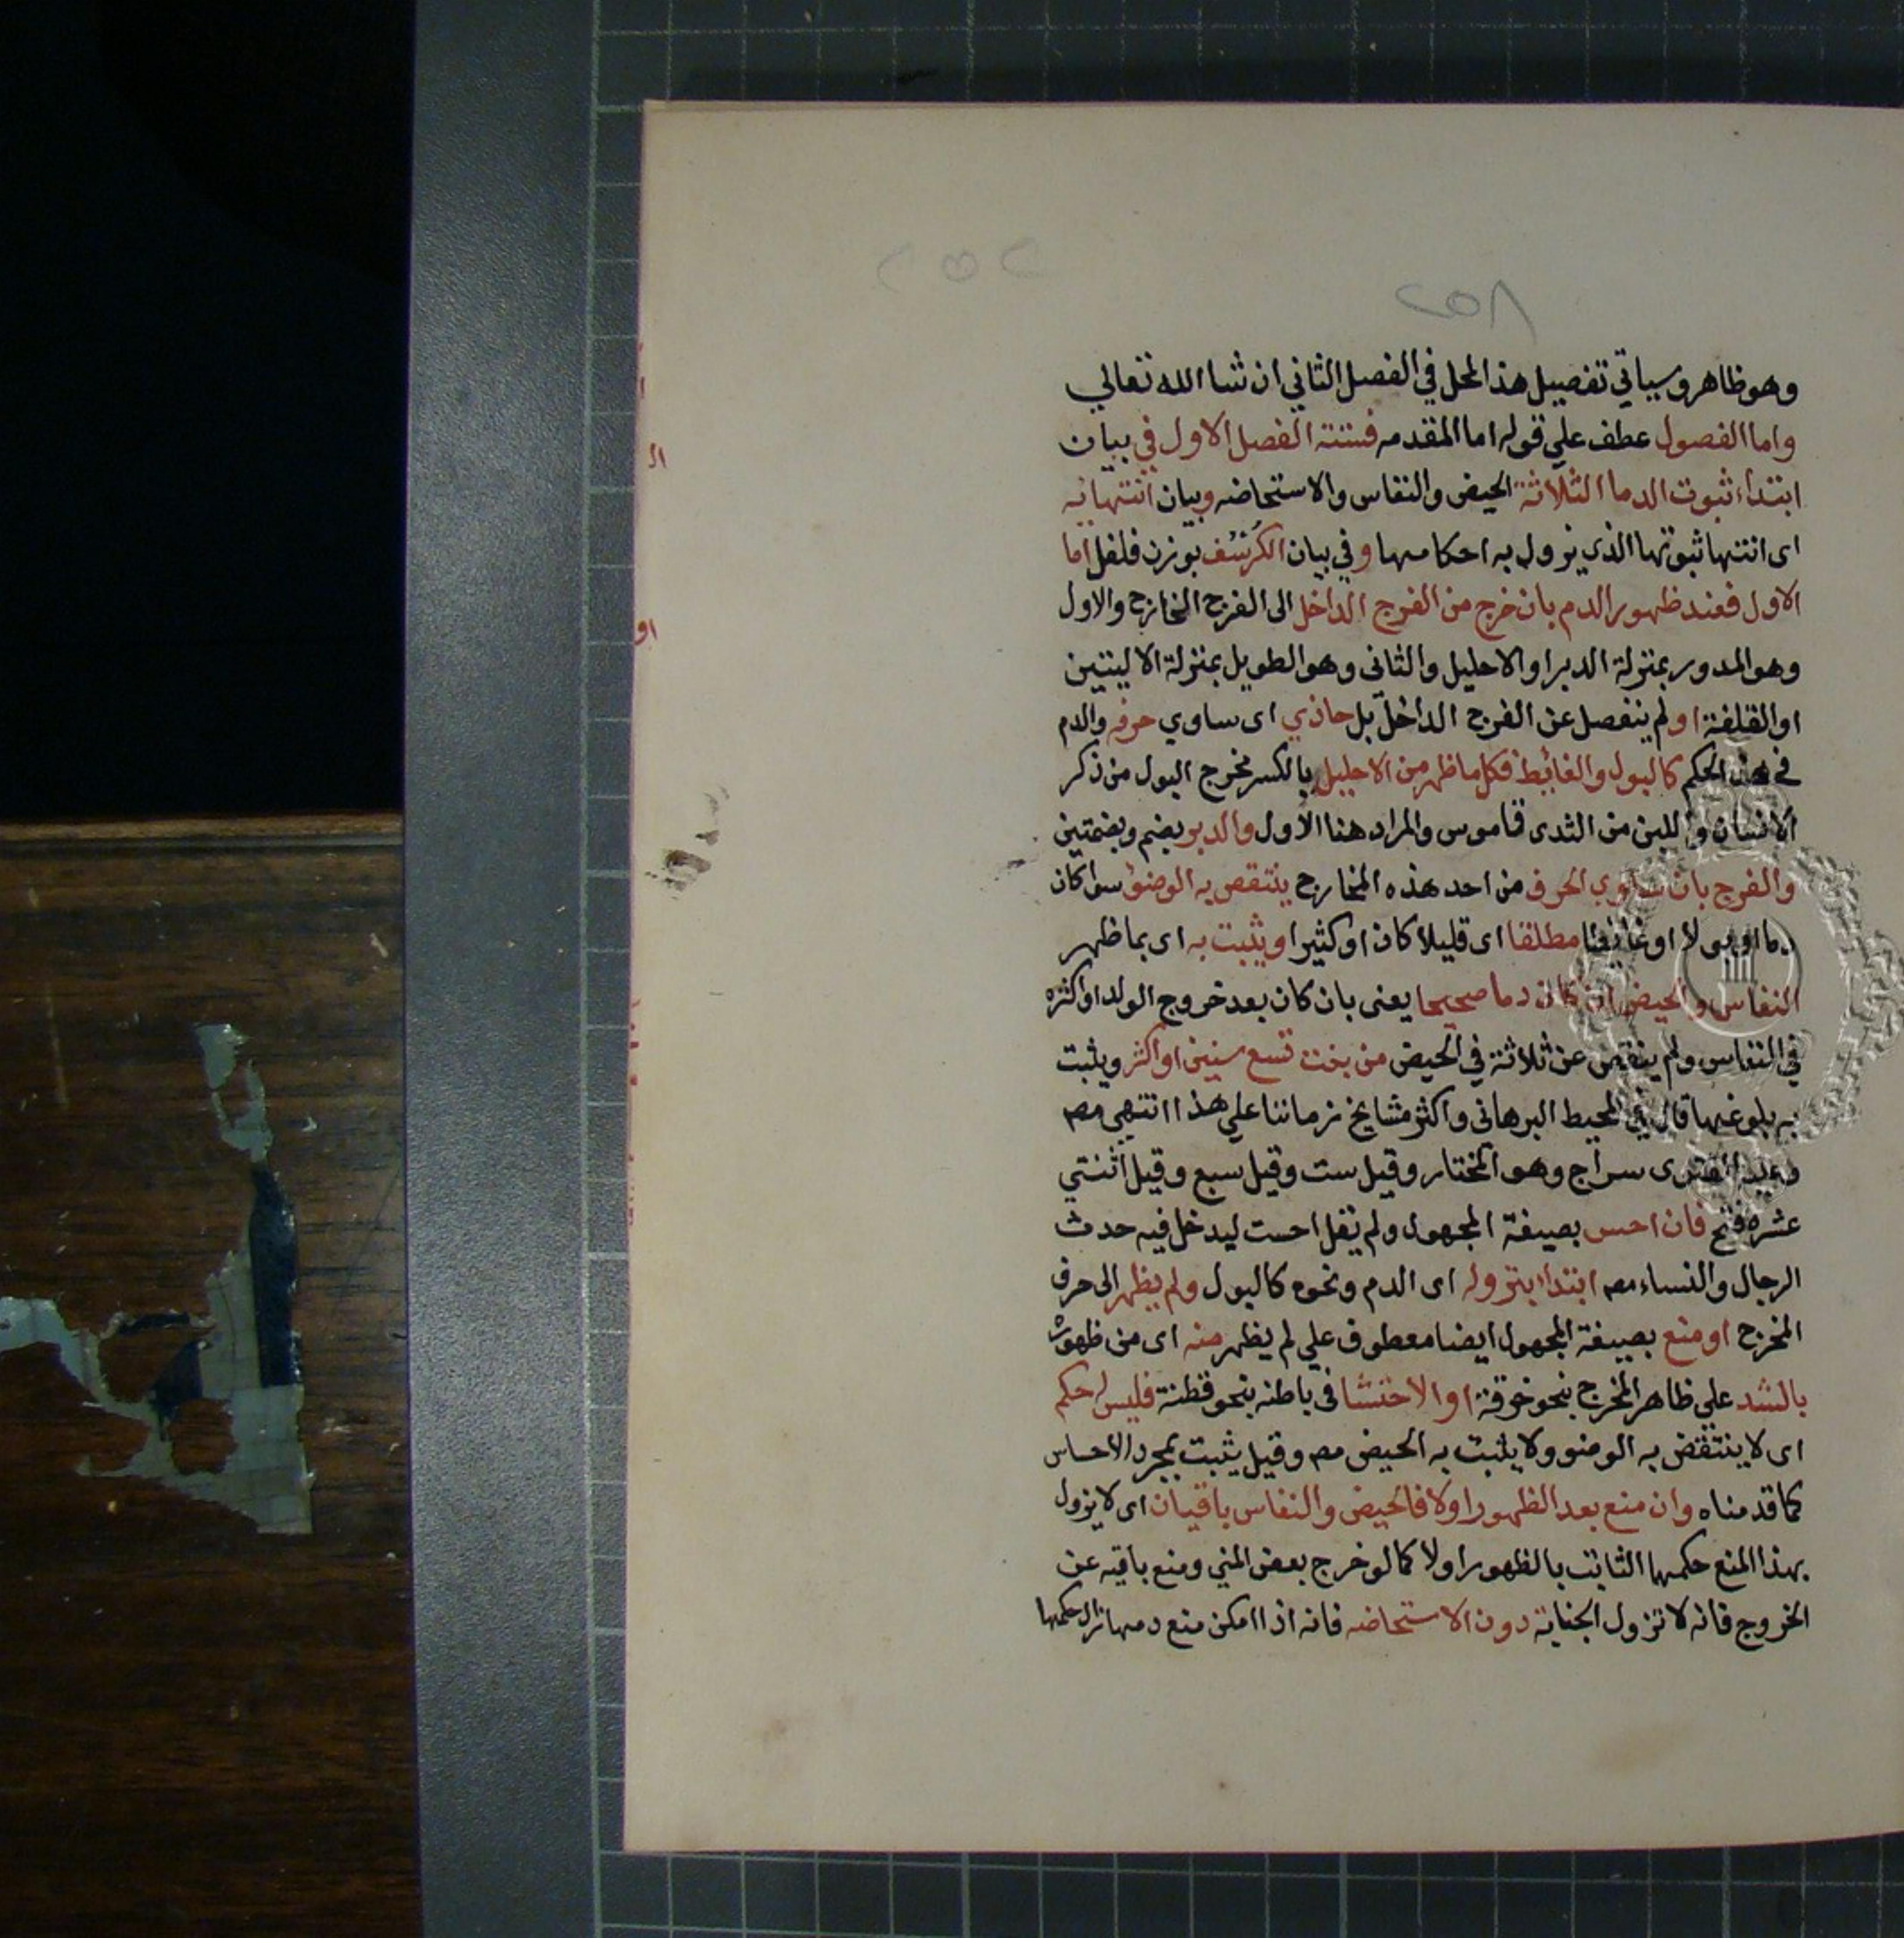 ٢٥٢
٢٥٨
وهو ظاهر وسياتي تفصيل هذا المحل في الفصل الثاني ان شا الله تعالي
واما الفصول عطف علي قوله اما المقدمه فستته الفصل الاول في بيان
ابتداء ثبوت الدما الثلاثة الحيض والنفاس والاستحاضه وبيان انتهائه
اى انتها ثبوتها الذي يزول به احكامها وفي بيان الكرسف بوزن فلفل اما
الاول فعند ظهور الدم بان خرج من الفرج الداخل الى الفرج الخارج والاول
وهو المدور بمنزلة الدبر او الاحليل والثانى وهو الطويل بمنزلة الاليتين
او القلفة او لم ينفصل عن الفرج الداخل بل حاذي اى ساوي حرفه والدم
في هذا الحكم كالبول والغائط فكل ما ظهر من الاحليل بالكسر مخرج البول من ذكر
الانسان واللبن من الثدى قاموس والمراد هنا الاول والدبر بضم وبضمتين
والفرج بان ساوي الحرف من احد هذه المخارج ينتقص به الوضوء سوا كان
دما او بولا او غائطا مطلقا اى قليلا كان او كثيرا ويثبت به اى بما ظهر
النفاس والحيض ان كان دما صحيحا يعنى بان كان بعد خروج الولد او اكثره
في النفاس ولم ينقص عن ثلاثة في الحيض من بنت تسع سنين او اكثر ويثبت
به بلوغها قال في المحيط البرهاني واكثر مشايخ زماننا علي هذا انتهي مصه
وعليه الفتوى سراج وهو المختار وقيل ست وقيل سبع وقيل اثنتي
عشره فتح فان احس بصيغة المجهول ولم يقل احست ليدخل فيه حدث
الرجال والنساء مصه ابتداء بنزوله اى الدم ونحوه كالبول ولم يظهر الى حرف
المخرج او منع بصيغة المجهول ايضا معطوف علي لم يظهر منه اى من ظهوره
بالشد علي ظاهر المخرج بنحو خرقة او الاحتشا في باطنه بنحو قطنة فليس له حكم
اى لا ينتقض به الوضوء ولا يثبت به الحيض مصه وقيل يثبت بمجرد الاحساس
كما قدمناه وان منع بعد الظهور اولا فالحيض والنفاس باقيان اى لا يزول
بهذا المنع حكمهما الثابت بالظهور اولا كما لو خرج بعض المني ومنع باقيه عن
الخروج فانه لا تزول الجنابة دون الاستحاضه فانه اذا امكن منع دمها زال حكمها